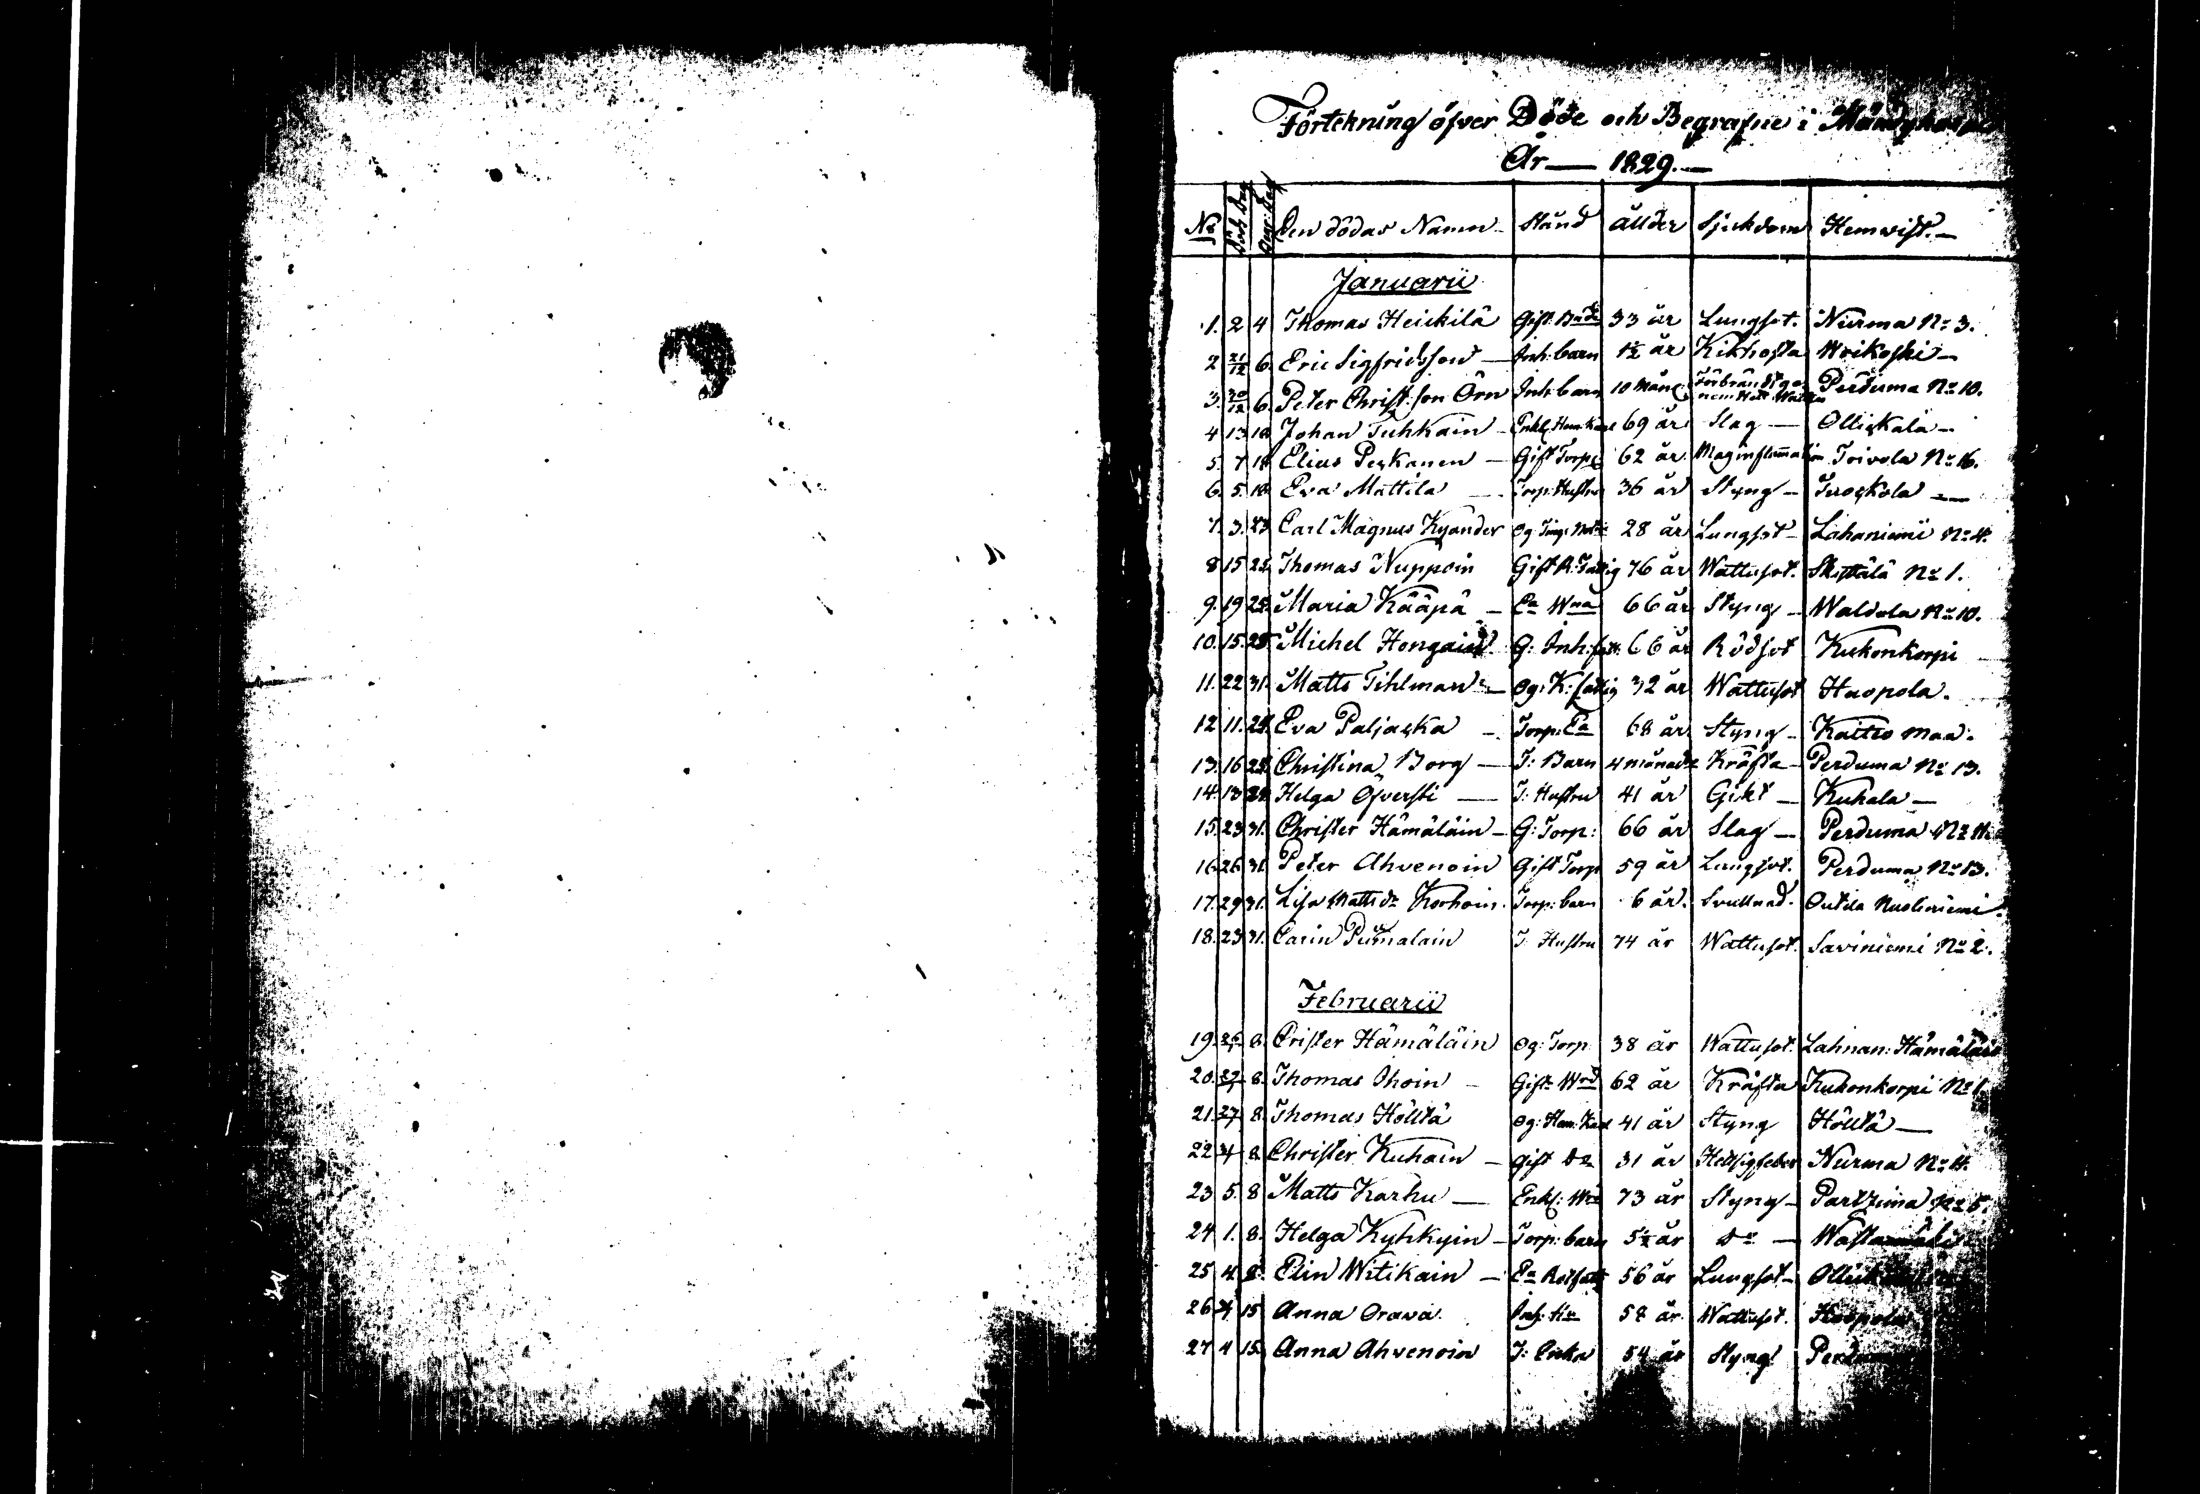 Förtekning öfver Döde och Begrafne i Mändyharju
År — 1829. —
No Död: Dag Begr: dag Den dödas Namn Stånd Ållder Sjukdom Hemvist. —
Januarii
1. 2 4 Thomas Heickilä Gift Bde 33 år Lungsot. Nurma No 3.
2 21/12 6. Eric Sigfridsson — Inh: barn 1½ år Kikhosta Wrikoski —
3. 30/12 6. Peter Christ:son Örn Inh: barn 10 Mån: Förbränd ge nem Hett Watten Perduma No 10.
4 13 18 Johan Tuhkain — Enkl: Hem: Karl 69 år Slag — Ollickala —
5. 7 18 Elias Peskanen — Gift Torp: 62 år Maginflammation Toivola No 16.
6. 5. 18 Eva Mattila — Torp: Hustru 36 år Styng —
7. 3. 23 Carl Magnus Kyander Og. 28 år Lungsot — Lahaniemi No 4.
8 15 25 Thomas Nuppoin Gift R: Fattig 76 år Wattusot. Skyttälä No 1.
9. 19 25. Maria Kääpä — Ea Wna 66 år Styng — Waldola No 10.
10. 15. 25. Michel Hongain G: Inh: fatt: 66 år Rödsot Kukonkorpi —
11. 22 31. Matts Tihlman — Og: K: fattig 32 år Wattusot Haopola.
12 11. 25. Eva Paljacka — Torp: Ea 68 år Styng — Kaitto maa.
13. 16 25. Christina Borg — T: Barn 4 månader Kräfta — Perduma No 13.
14. 13 25. Helga Öfversti — T: Hustru 41 år Gikt — Kukala —
15. 23 31. Christer Hämäläin — G: Torp: 66 år Slag — Perduma No 11.
16. 26 31. Peter Ahvenoin Gift Torp 59 år Lungsot. Perduma No 13.
17. 29 31. Lisa Matts dr Korhoin. Torp: barn 6 år. Svullnad. Outila Nuoliniemi.
18. 23 31. Carin Pumalain T: Hustru 74 år Wattusot. Saviniemi No 2.
Februarii
19. 8. Crister Hämäläin Og: Torp 38 år Wattusot. Lahnan: Hämäläin
20. 27 8. Thomas Ohoin — Gift Wrd 62 år Kräfta Kukonkorpi No 1.
21. 27 8. Thomas Hölltä Og: Hem: Karl 41 år Styng Hölltä —
22 31 8. Christer Kuhain — Gift Do 31 år Hettsigfeber Nurma No 4.
23 5. 8 Matts Karhu — Enkl: Wd 73 år Styng — Partzima No 5.
24 1. 8. Helga Kyhkyin — Torp: barn 5½ år Do —
25 4. 8. Elin Witikain — Ea Rotfatt 56 år Lungsot —
26 15 Anna Orava. Inh: Hu 58 år Wattusot. Haopola
27 4 15. Anna Ahvenoin T: Enka 54 år Styng